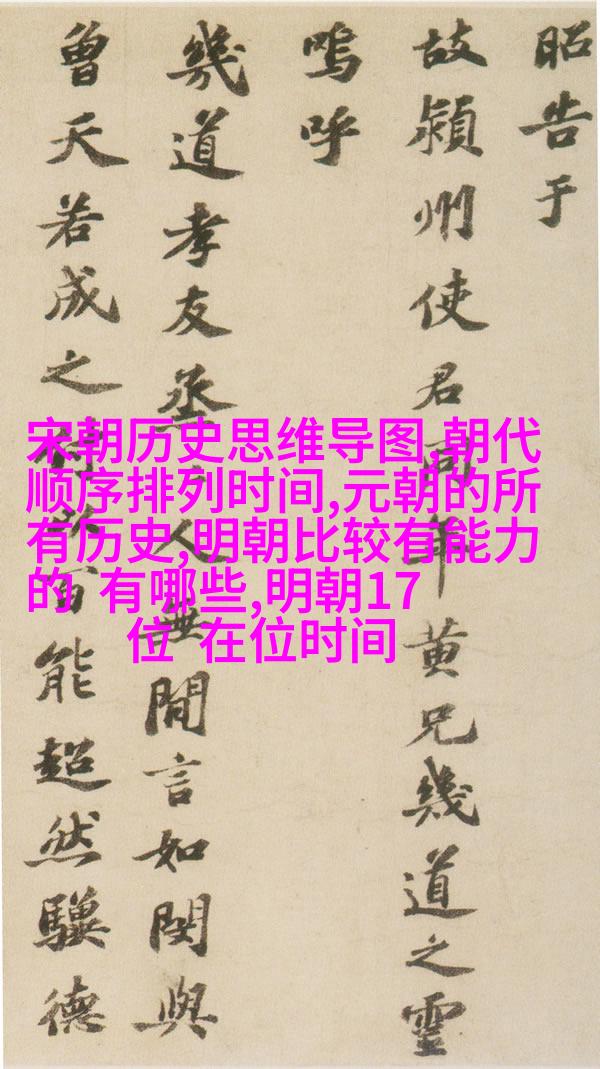 昭告于
故潁州使君同年黄兄幾道之靈
嗚呼
幾道孝友烝〻人無閒言如閔與
曾天若成之付以百能超然驥德
宋朝历史思维导图,朝代
顺序排列时间,元朝的所
有历史,明朝比较有能力
的 有哪些,明朝17
位 在位时间